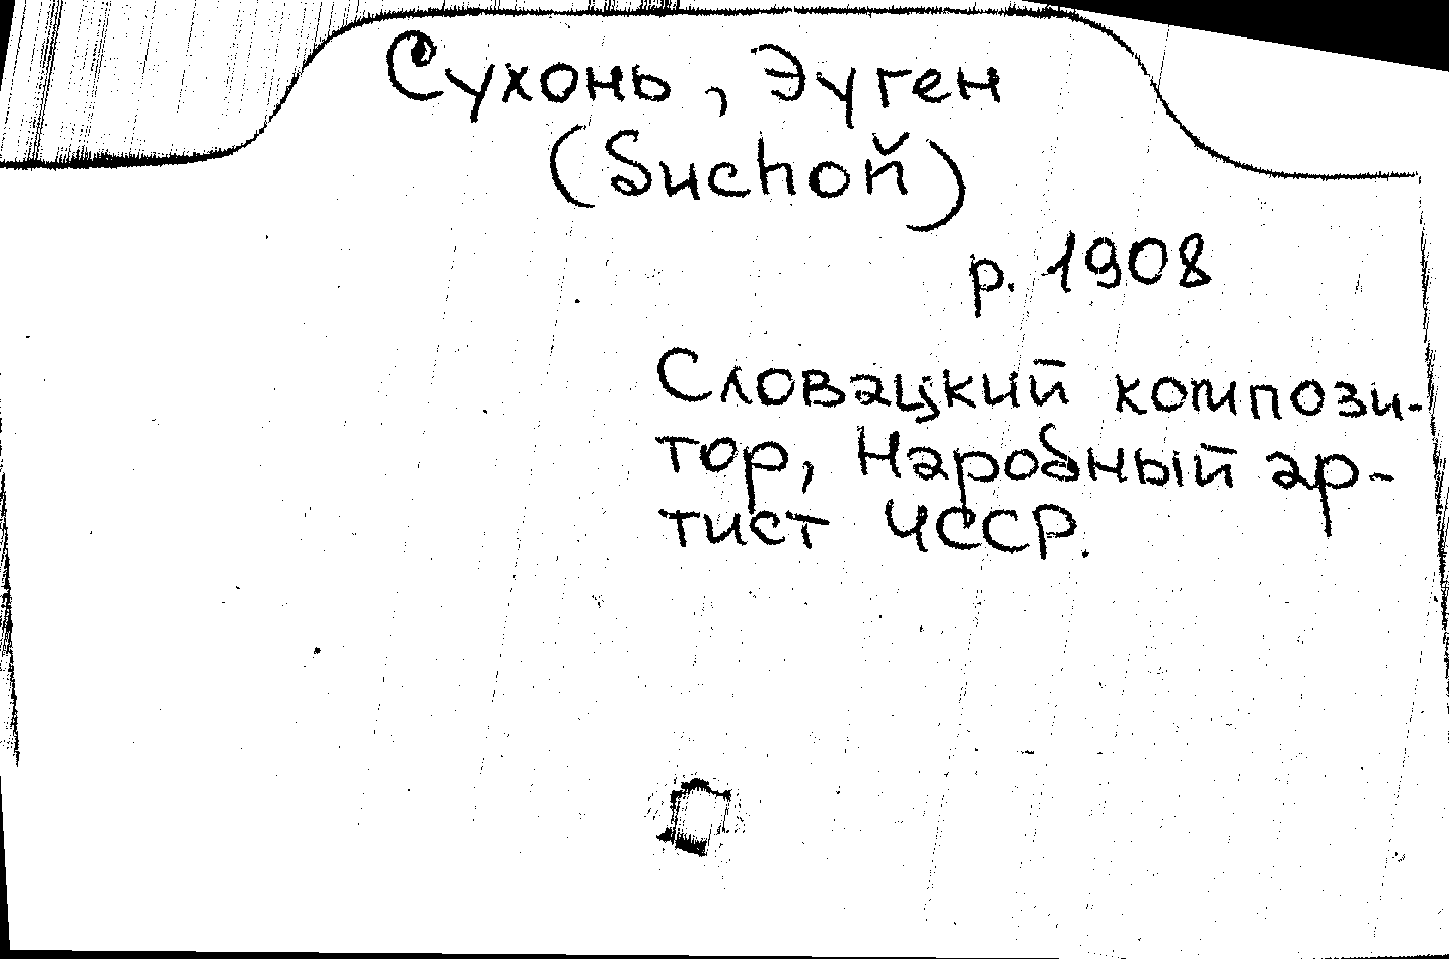 Сухонь, Эуген
(Suchoň)
р. 1908
Словацкий компози-
тор, Народный ар-
тист ЧССР.